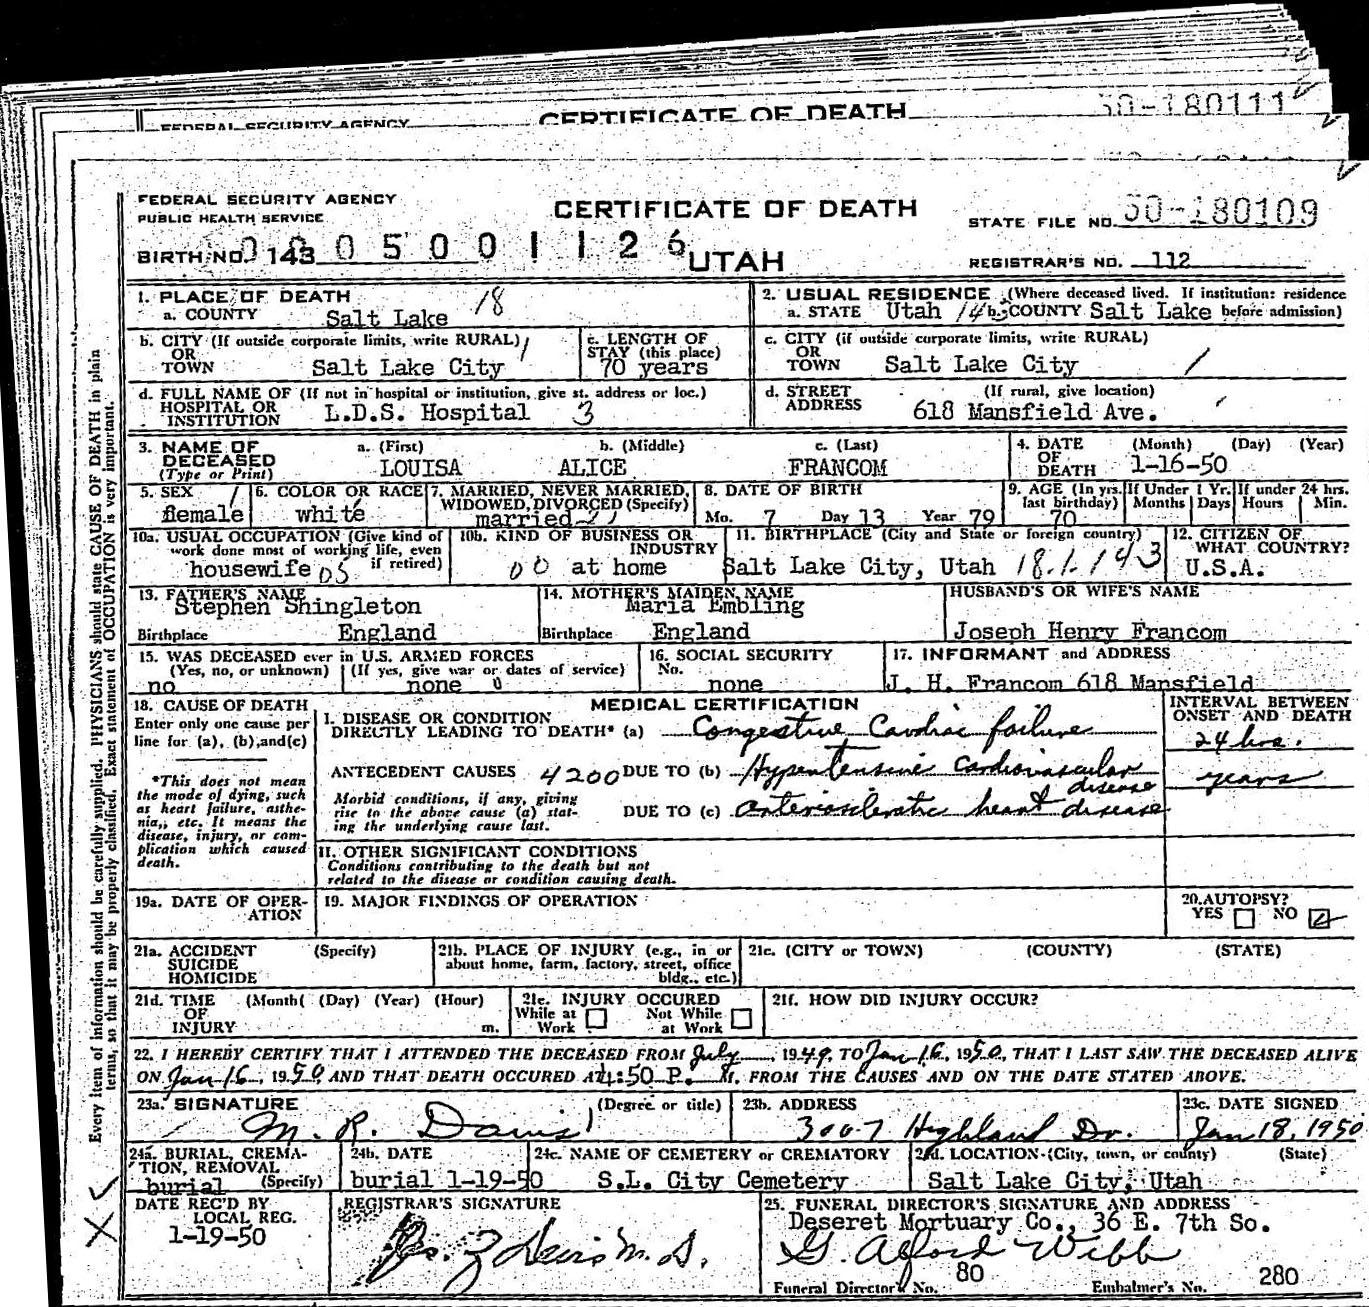 FEDERAL SECURITY AGENCY CERTIFICATE OF DEATH 50-180111
FEDERAL SECURITY AGENCY
PUBLIC HEALTH SERVICE
CERTIFICATE OF DEATH
STATE FILE NO. 50-180109
BIRTH NO. 143 0 0 0 5 0 0 1 1 2 6
UTAH
REGISTRAR'S NO. 112
1. PLACE OF DEATH 18
a. COUNTY Salt Lake
2. USUAL RESIDENCE (Where deceased lived. If institution: residence
a. STATE Utah 14 b. COUNTY Salt Lake before admission)
b. CITY (If outside corporate limits, write RURAL) 1
OR
TOWN Salt Lake City
c. LENGTH OF
STAY (this place)
70 years
c. CITY (if outside corporate limits, write RURAL)
OR
TOWN Salt Lake City
d. FULL NAME OF (If not in hospital or institution, give st. address or loc.)
HOSPITAL OR
INSTITUTION L.D.S. Hospital 3
d. STREET (If rural, give location)
ADDRESS 618 Mansfield Ave.
3. NAME OF a. (First) b. (Middle) c. (Last)
DECEASED
(Type or Print) LOUISA ALICE FRANCOM
4. DATE (Month) (Day) (Year)
OF
DEATH 1-16-50
5. SEX
female
6. COLOR OR RACE
white
7. MARRIED, NEVER MARRIED,
WIDOWED, DIVORCED (Specify)
married
8. DATE OF BIRTH
Mo. 7 Day 13 Year 79
9. AGE (In yrs. last birthday)
70
If Under 1 Yr.
Months Days
If under 24 hrs.
Hours Min.
10a. USUAL OCCUPATION (Give kind of
work done most of working life, even
if retired)
housewife 05
10b. KIND OF BUSINESS OR
INDUSTRY
00 at home
11. BIRTHPLACE (City and State or foreign country)
Salt Lake City, Utah 18.1.143
12. CITIZEN OF
WHAT COUNTRY?
U.S.A.
13. FATHER'S NAME
Stephen Shingleton
Birthplace England
14. MOTHER'S MAIDEN NAME
Maria Embling
Birthplace England
HUSBAND'S OR WIFE'S NAME
Joseph Henry Francom
15. WAS DECEASED ever in U.S. ARMED FORCES
(Yes, no, or unknown) (If yes, give war or dates of service)
no none 0
16. SOCIAL SECURITY
No.
none
17. INFORMANT and ADDRESS
J. H. Francom 618 Mansfield
18. CAUSE OF DEATH
Enter only one cause per
line for (a), (b), and (c)
*This does not mean
the mode of dying, such
as heart failure, asthe-
nia,, etc. It means the
disease, injury, or com-
plication which caused
death.
MEDICAL CERTIFICATION
I. DISEASE OR CONDITION
DIRECTLY LEADING TO DEATH* (a) Congestive Cardiac failure
ANTECEDENT CAUSES 4200 DUE TO (b) Hypertensive Cardiovascular
disease
Morbid conditions, if any, giving
rise to the above cause (a) stat-
ing the underlying cause last.
DUE TO (c) arteriosclerotic heart disease
INTERVAL BETWEEN
ONSET AND DEATH
24 hrs.
years
II. OTHER SIGNIFICANT CONDITIONS
Conditions contributing to the death but not
related to the disease or condition causing death.
19a. DATE OF OPER-
ATION
19. MAJOR FINDINGS OF OPERATION
20. AUTOPSY?
YES NO
21a. ACCIDENT (Specify)
SUICIDE
HOMICIDE
21b. PLACE OF INJURY (e.g., in or
about home, farm, factory, street, office
bldg., etc.)
21c. (CITY or TOWN) (COUNTY) (STATE)
21d. TIME (Month( (Day) (Year) (Hour)
OF
INJURY m.
21e. INJURY OCCURED
While at Not While
Work at Work
21f. HOW DID INJURY OCCUR?
22. I HEREBY CERTIFY THAT I ATTENDED THE DECEASED FROM July, 1949, TO Jan 16, 1950, THAT I LAST SAW THE DECEASED ALIVE
ON Jan 16, 1950 AND THAT DEATH OCCURED AT 4:50 P. M. FROM THE CAUSES AND ON THE DATE STATED ABOVE.
23a. SIGNATURE (Degree or title)
M. R. Davis
23b. ADDRESS
3007 Highland Dr.
23c. DATE SIGNED
Jan 18, 1950
24a. BURIAL, CREMA-
TION, REMOVAL
(Specify)
burial
24b. DATE
burial 1-19-50
24c. NAME OF CEMETERY or CREMATORY
S.L. City Cemetery
24d. LOCATION (City, town, or county) (State)
Salt Lake City, Utah
DATE REC'D BY
LOCAL REG.
1-19-50
REGISTRAR'S SIGNATURE
25. FUNERAL DIRECTOR'S SIGNATURE AND ADDRESS
Deseret Mortuary Co., 36 E. 7th So.
G. Alford Webb
Funeral Director No. 80 Embalmer's No. 280
Every item of information should be carefully supplied. PHYSICIANS should state CAUSE OF DEATH in plain
terms, so that it may be properly classified. Exact statement of OCCUPATION is very important.